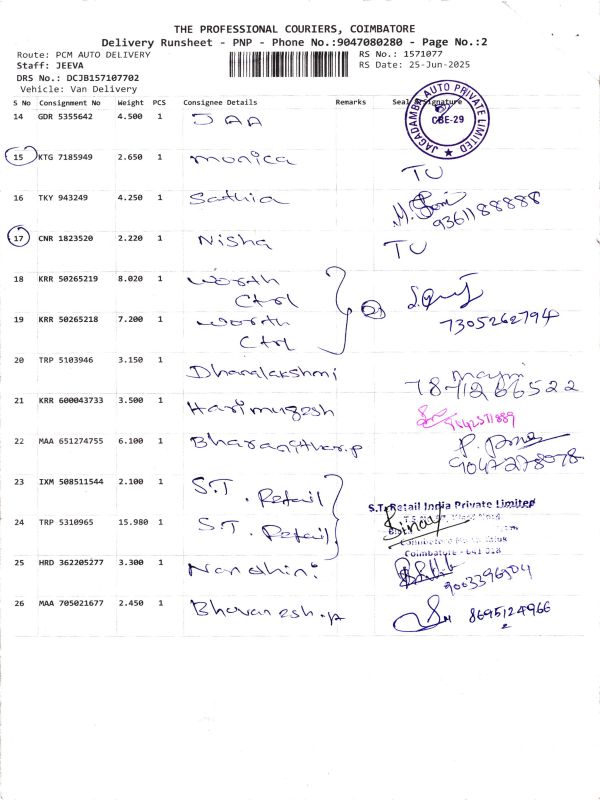 THE PROFESSIONAL COURIERS, COIMBATORE
Delivery Runsheet - PNP - Phone No.:9047080280 - Page No.:2
Route: PCM AUTO DELIVERY RS No.: 1571077
Staff: JEEVA RS Date: 25-Jun-2025
DRS No.: DCJB157107702
Vehicle: Van Delivery
S No Consignment No Weight PCS Consignee Details Remarks Seal Signature
14 GDR 5355642 4.500 1 JAA
JAGADAMBA AUTO PRIVATE LIMITED
CBE-29
15 KTG 7185949 2.650 1 monica TU
16 TKY 943249 4.250 1 Sathia
9361188888
17 CNR 1823520 2.220 1 Nisha TU
18 KRR 50265219 8.020 1 worth
Ctrl
19 KRR 50265218 7.200 1 worth
Ctrl
7305262794
20 TRP 5103946 3.150 1 Dhanalakshmi
21 KRR 600043733 3.500 1 Harimugesh
22 MAA 651274755 6.100 1 Bharanithar.p
9047278078
23 IXM 508511544 2.100 1 S.T. Retail
S.T. Retail India Private Limited
24 TRP 5310965 15.980 1 S.T. Retail
Coimbatore - 641 018
25 HRD 362205277 3.300 1 Nandhini
9003396504
26 MAA 705021677 2.450 1 Bhavanesh.p
8695124966